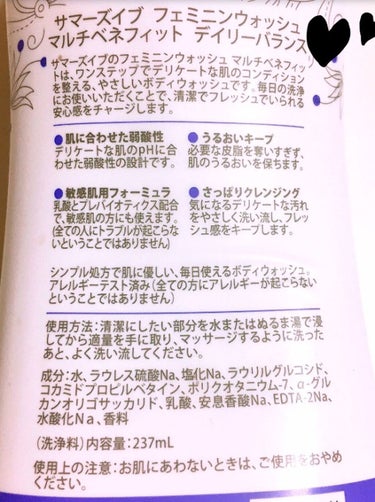 サマーズイブ フェミニンウォッシュ
マルチベネフィット デイリーバランス
サマーズイブのフェミニンウォッシュ マルチベネフィッ
トは、ワンステップでデリケートな肌のコンディション
を整える、やさしいボディウォッシュです。毎日の洗浄
にお使いいただくことで、清潔でフレッシュでいられる
安心感をチャージします。
●肌に合わせた弱酸性
デリケートな肌のpHに合
わせた弱酸性の設計です。
●うるおいキープ
必要な皮脂を奪いすぎず、
肌のうるおいを保ちます。
●敏感肌用フォーミュラ
乳酸とプレバイオティクス配合
で、敏感肌の方にも使えます。
(全ての人にトラブルが起こらな
いということではありません)
●さっぱりクレンジング
気になるデリケートな汚れ
をやさしく洗い流し、フレッ
シュ感をキープします。
シンプル処方で肌に優しい、毎日使えるボディウォッシュ。
アレルギーテスト済み(全ての方にアレルギーが起こらない
ということではありません)
使用方法:清潔にしたい部分を水またはぬるま湯で浸
してから適量を手に取り、マッサージするように洗った
あと、よく洗い流してください。
成分:水、ラウレス硫酸Na、塩化Na、ラウリルグルコシド、
コカミドプロピルベタイン、ポリクオタニウム-7、α-グル
カンオリゴサッカリド、乳酸、安息香酸Na、EDTA-2Na、
水酸化Na、香料
(洗浄料)内容量:237mL
使用上の注意:お肌にあわないときは、ご使用をおやめ
ください。